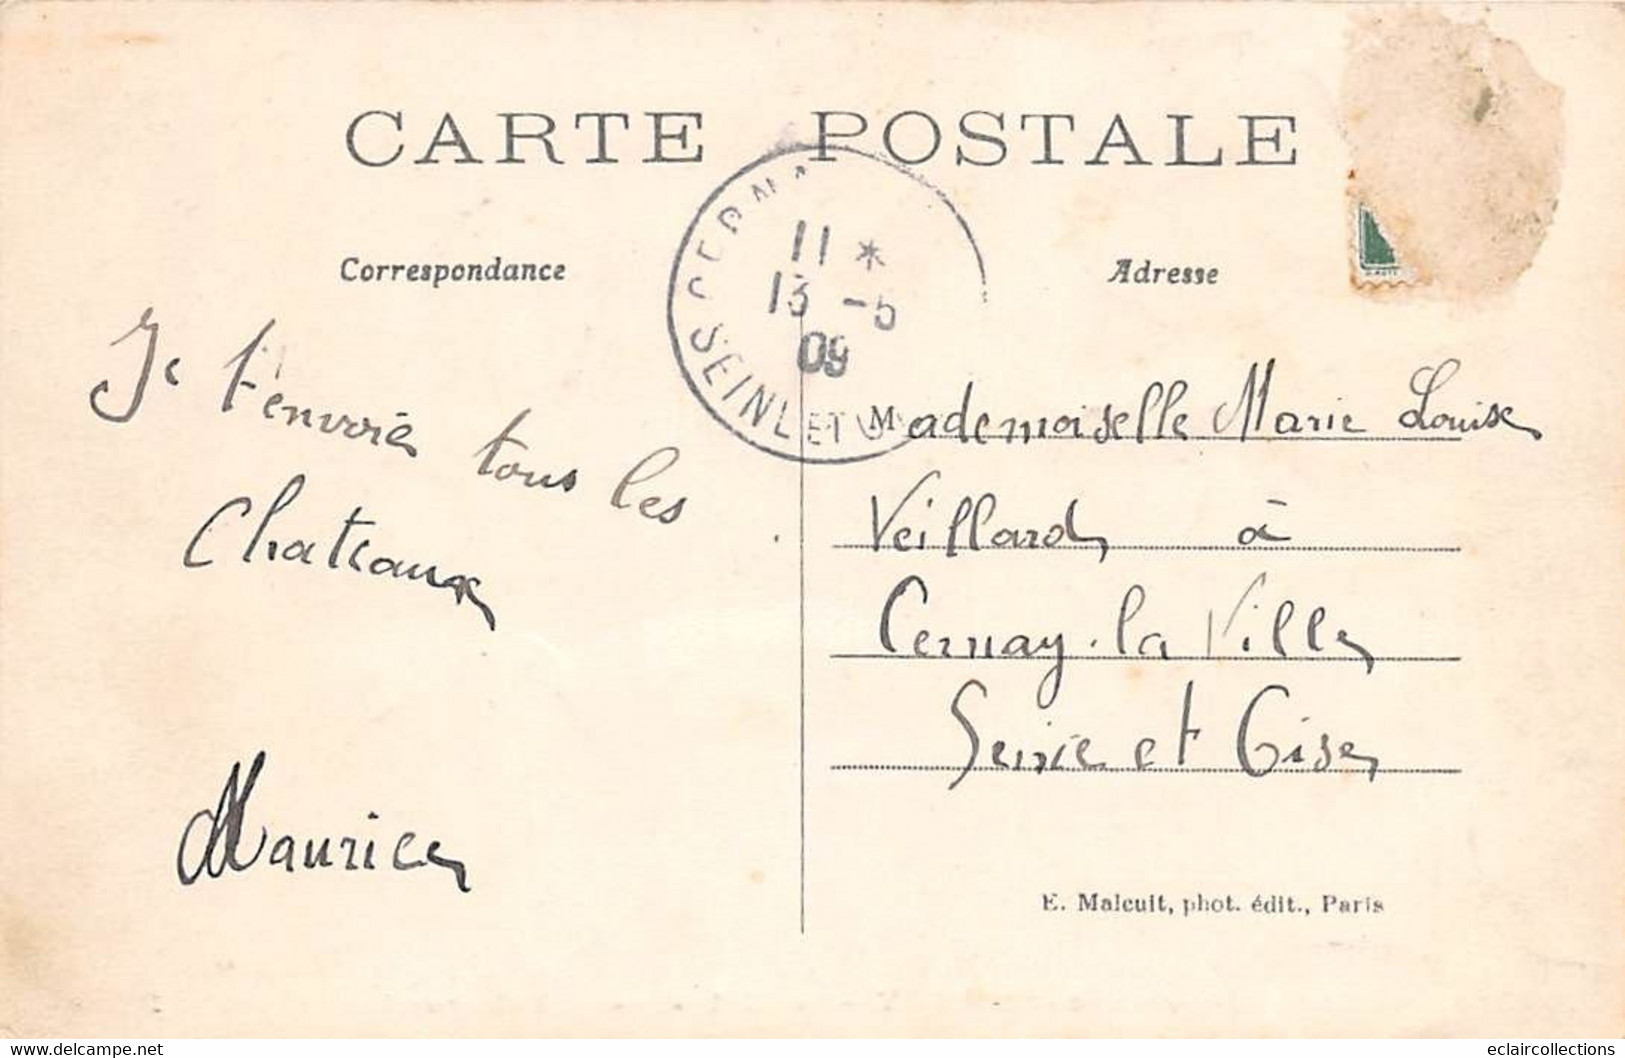 CARTE POSTALE
Correspondance
Adresse
CERNA
11 *
13 -5
09
SEINE ET O
Je t'envoie tous les
Chateaux
Maurice
Mademoiselle Marie Louise
Veillard à
Cernay-la Ville
Seine et Oise
E. Malcuit, phot. édit., Paris
www.delcampe.net
eclaircollections